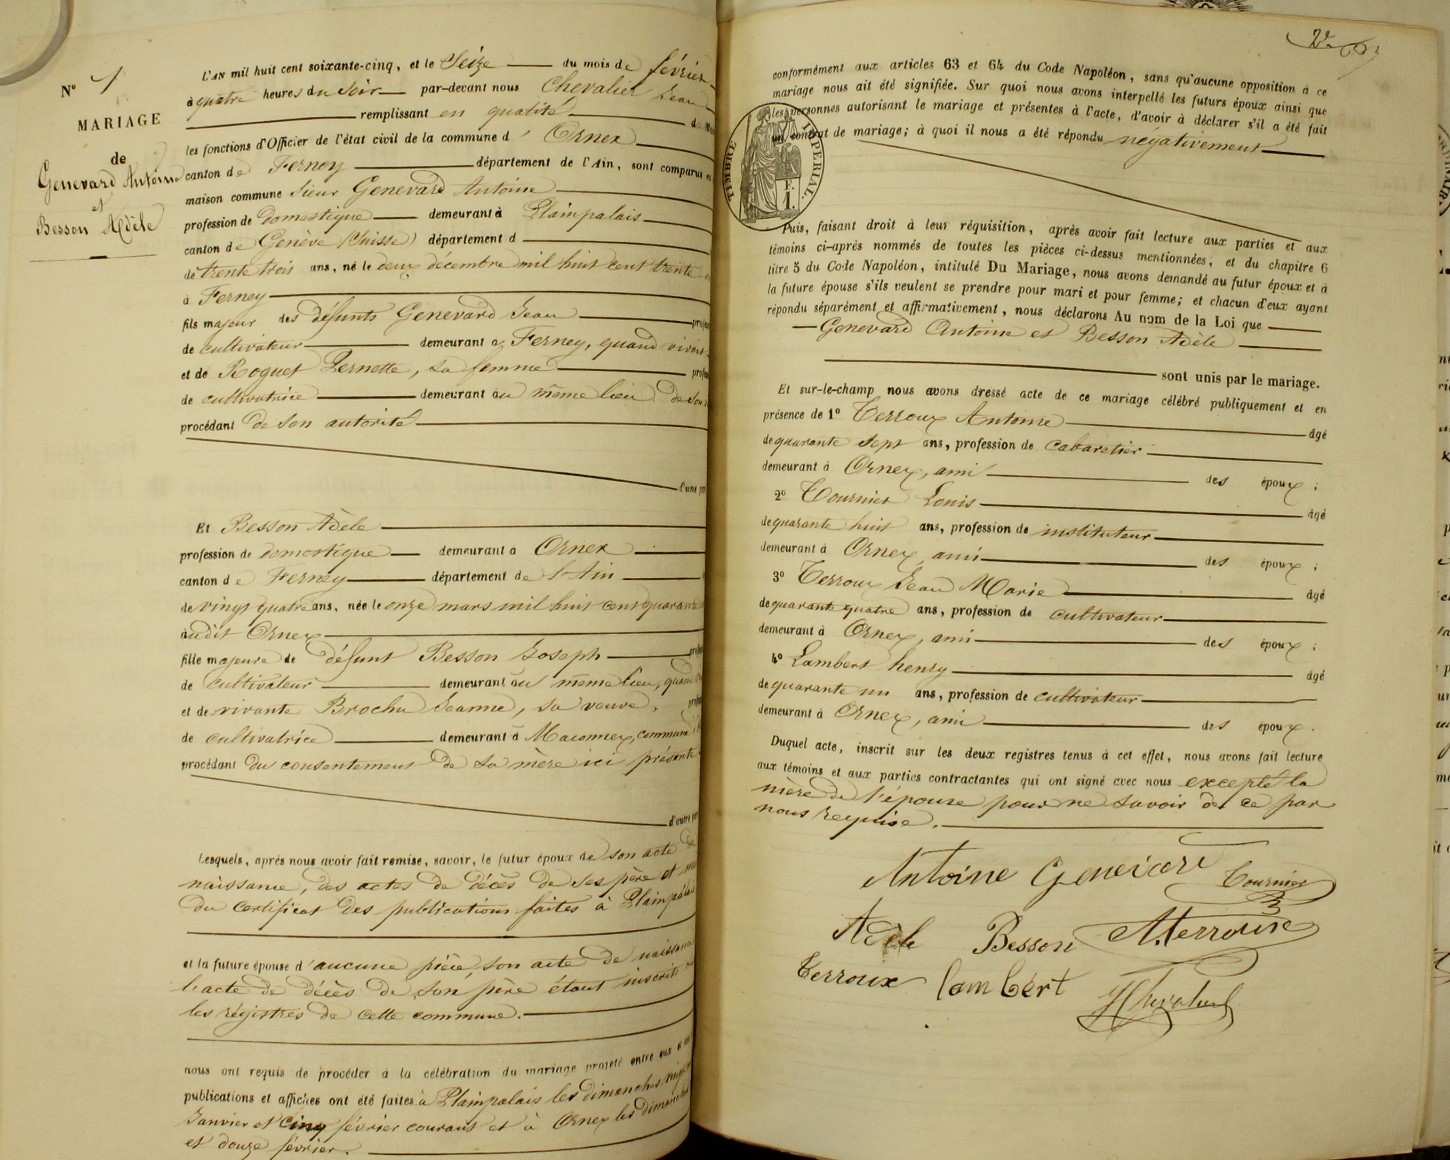 N° 1
MARIAGE
de
Genevard Antoine
et
Besson Adèle
L'AN mil huit cent soixante-cinq, et le Seize du mois de février
à quatre heures du Soir par-devant nous Chevalier Jean
remplissant en qualité de
les fonctions d'Officier de l'état civil de la commune d' Ornex
canton de Ferney département de l'Ain, sont comparus en
maison commune Sieur Genevard Antoine
profession de domestique demeurant à Plainpalais
canton de Genève (Suisse) département d
de trente trois ans, né le deux décembre mil huit cent trente
à Ferney
fils majeur des défunts Genevard Jean
de cultivateur demeurant à Ferney, quand vivait
et de Roguet Pernette, sa femme
de cultivatrice demeurant au même lieu
procédant de son autorité
l'une part
Et Besson Adèle
profession de domestique demeurant à Ornex
canton de Ferney département de l'Ain
de vingt quatre ans, née le onze mars mil huit cent quarante
audit Ornex
fille majeure de défunt Besson Joseph
de cultivateur demeurant au même lieu, quand
et de vivante Brochu Jeanne, sa veuve,
de cultivatrice demeurant à Maconnex, commune
procédant du consentement de sa mère ici présente
d'autre part
Lesquels, après nous avoir fait remise, savoir, le futur époux de son acte de
naissance, des actes de décès de ses père et mère
du certificat des publications faites à Plainpalais
et la future épouse d'aucune pièce, son acte de naissance
l'acte de décès de son père étant inscrits
les régistres de cette commune.
nous ont requis de procéder à la célébration du mariage projeté entre eux
publications et affiches ont été faites à Plainpalais les dimanches
Janvier et cinq février courant et à Ornex les dimanches
et douze février.
2e
conformément aux articles 63 et 64 du Code Napoléon, sans qu'aucune opposition à ce
mariage nous ait été signifiée. Sur quoi nous avons interpellé les futurs époux ainsi que
les personnes autorisant le mariage et présentes à l'acte, d'avoir à déclarer s'il a été fait
un contrat de mariage; à quoi il nous a été répondu négativement
TIMBRE IMPERIAL.
F.
1.
Puis, faisant droit à leur réquisition, après avoir fait lecture aux parties et aux
témoins ci-après nommés de toutes les pièces ci-dessus mentionnées, et du chapitre 6
titre 5 du Code Napoléon, intitulé Du Mariage, nous avons demandé au futur époux et à
la future épouse s'ils veulent se prendre pour mari et pour femme; et chacun d'eux ayant
répondu séparément et affirmativement, nous déclarons Au nom de la Loi que
Genevard Antoine et Besson Adèle
sont unis par le mariage.
Et sur-le-champ nous avons dressé acte de ce mariage célébré publiquement et en
présence de 1° Terroux Antoine âgé
de quarante sept ans, profession de cabaretier
demeurant à Ornex, ami des époux ;
2° Tournier Louis âgé
de quarante huit ans, profession de instituteur
demeurant à Ornex, ami des époux ;
3° Terroux Jean Marie âgé
de quarante quatre ans, profession de cultivateur
demeurant à Ornex, ami des époux ;
4° Lambert henry âgé
de quarante un ans, profession de cultivateur
demeurant à Ornex, ami des époux.
Duquel acte, inscrit sur les deux registres tenus à cet effet, nous avons fait lecture
aux témoins et aux parties contractantes qui ont signé avec nous excepté la
mère de l'épouse pour ne savoir de ce par
nous requise.
Antoine Genevard Tournier
Adèle Besson A. Terroux
Terroux lambert
J Chevalier